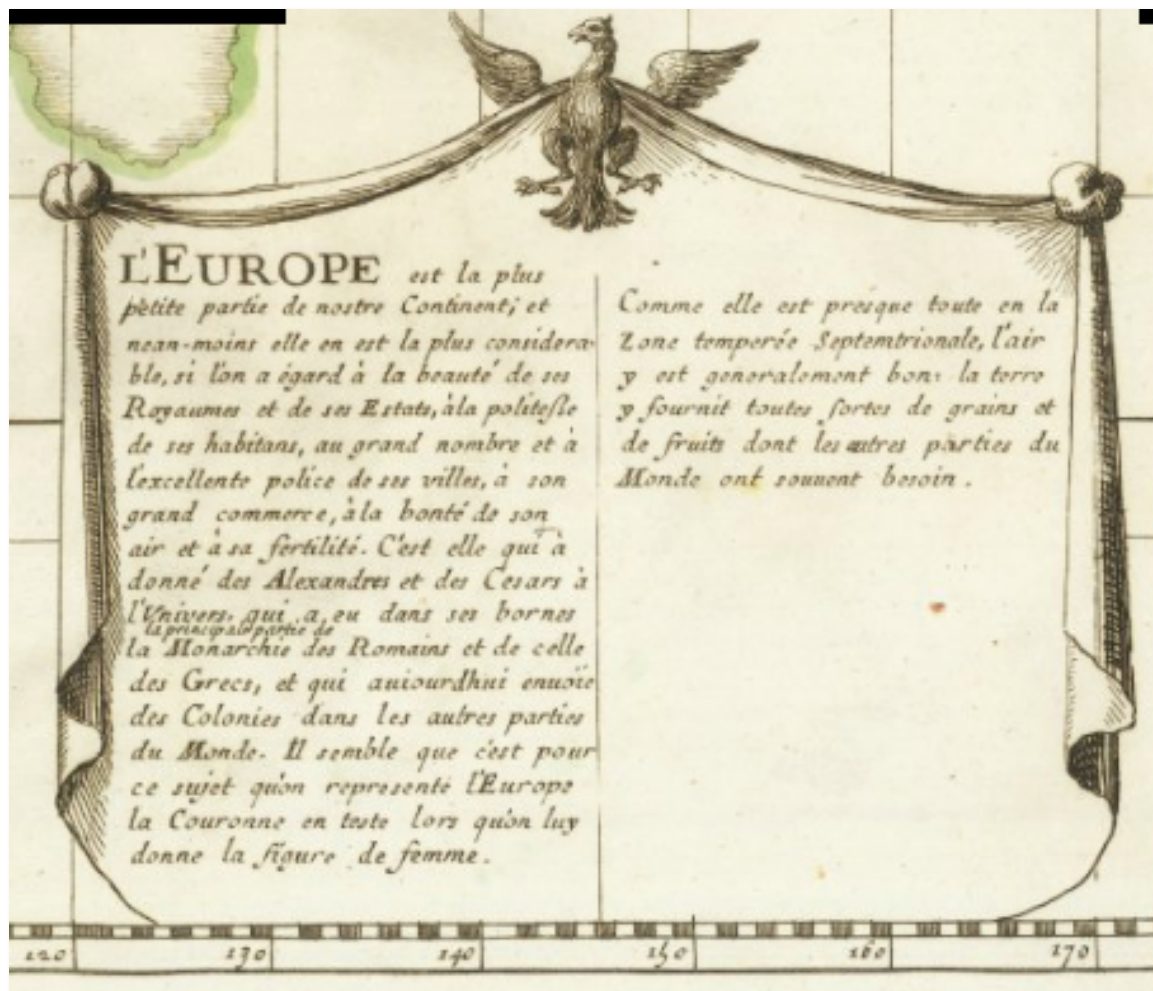 L'EUROPE est la plus
petite partie de nostre Continent; et
nean-moins elle en est la plus considera-
ble, si l'on a égard à la beauté de ses
Royaumes et de ses Estats, à la politesse
de ses habitans, au grand nombre et à
l'excellente police de ses villes, à son
grand commerce, à la bonté de son
air et à sa fertilité. C'est elle qui à
donné des Alexandres et des Cesars à
l'Univers, qui a eu dans ses bornes
la principale partie de
la Monarchie des Romains et de celle
des Grecs, et qui auiourdhui enuoïe
des Colonies dans les autres parties
du Monde. Il semble que c'est pour
ce sujet qu'on represente l'Europe
la Couronne en teste lors qu'on luy
donne la figure de femme.
Comme elle est presque toute en la
Zone temperée Septemtrionale, l'air
y est generalement bon: la terre
y fournit toutes sortes de grains et
de fruits dont les autres parties du
Monde ont souuent besoin.
120 130 140 150 160 170